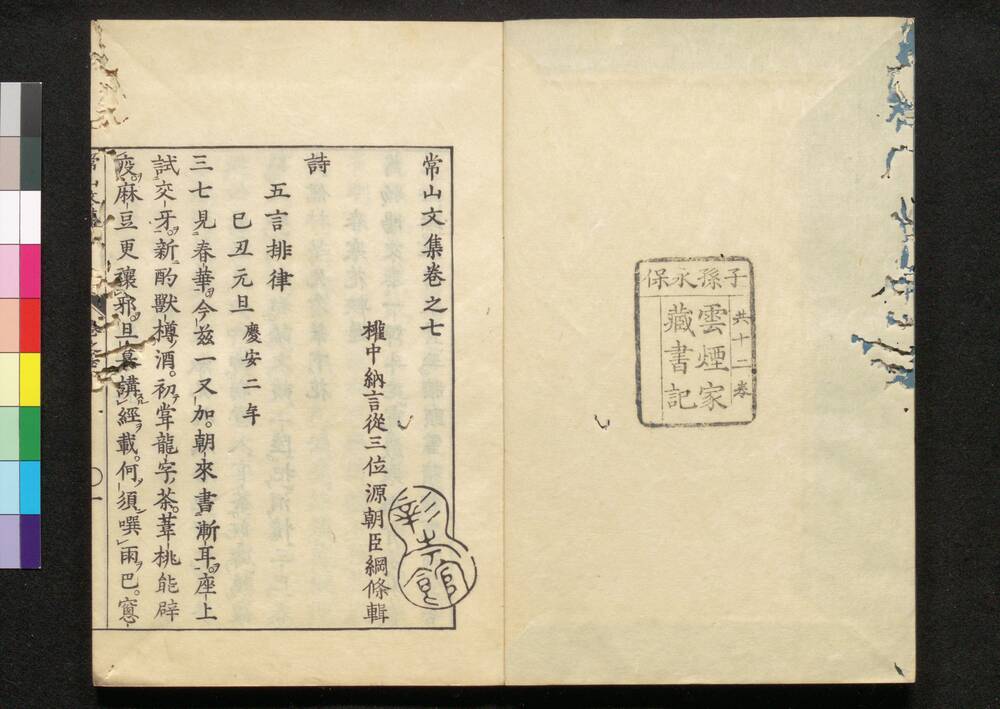 子孫永保
共十二卷
雲煙家
藏書記
常山文集卷之七
權中納言從三位源朝臣綱條輯
彰考館
詩
五言排律
己丑元旦 慶安二年
三七見春華今茲一又加朝來書漸耳座上
試交牙新酌獸樽酒初甞龍字茶葦桃能辟
疫麻豆更禳邪旦暮講經載何須噀雨巴窻
常山文集